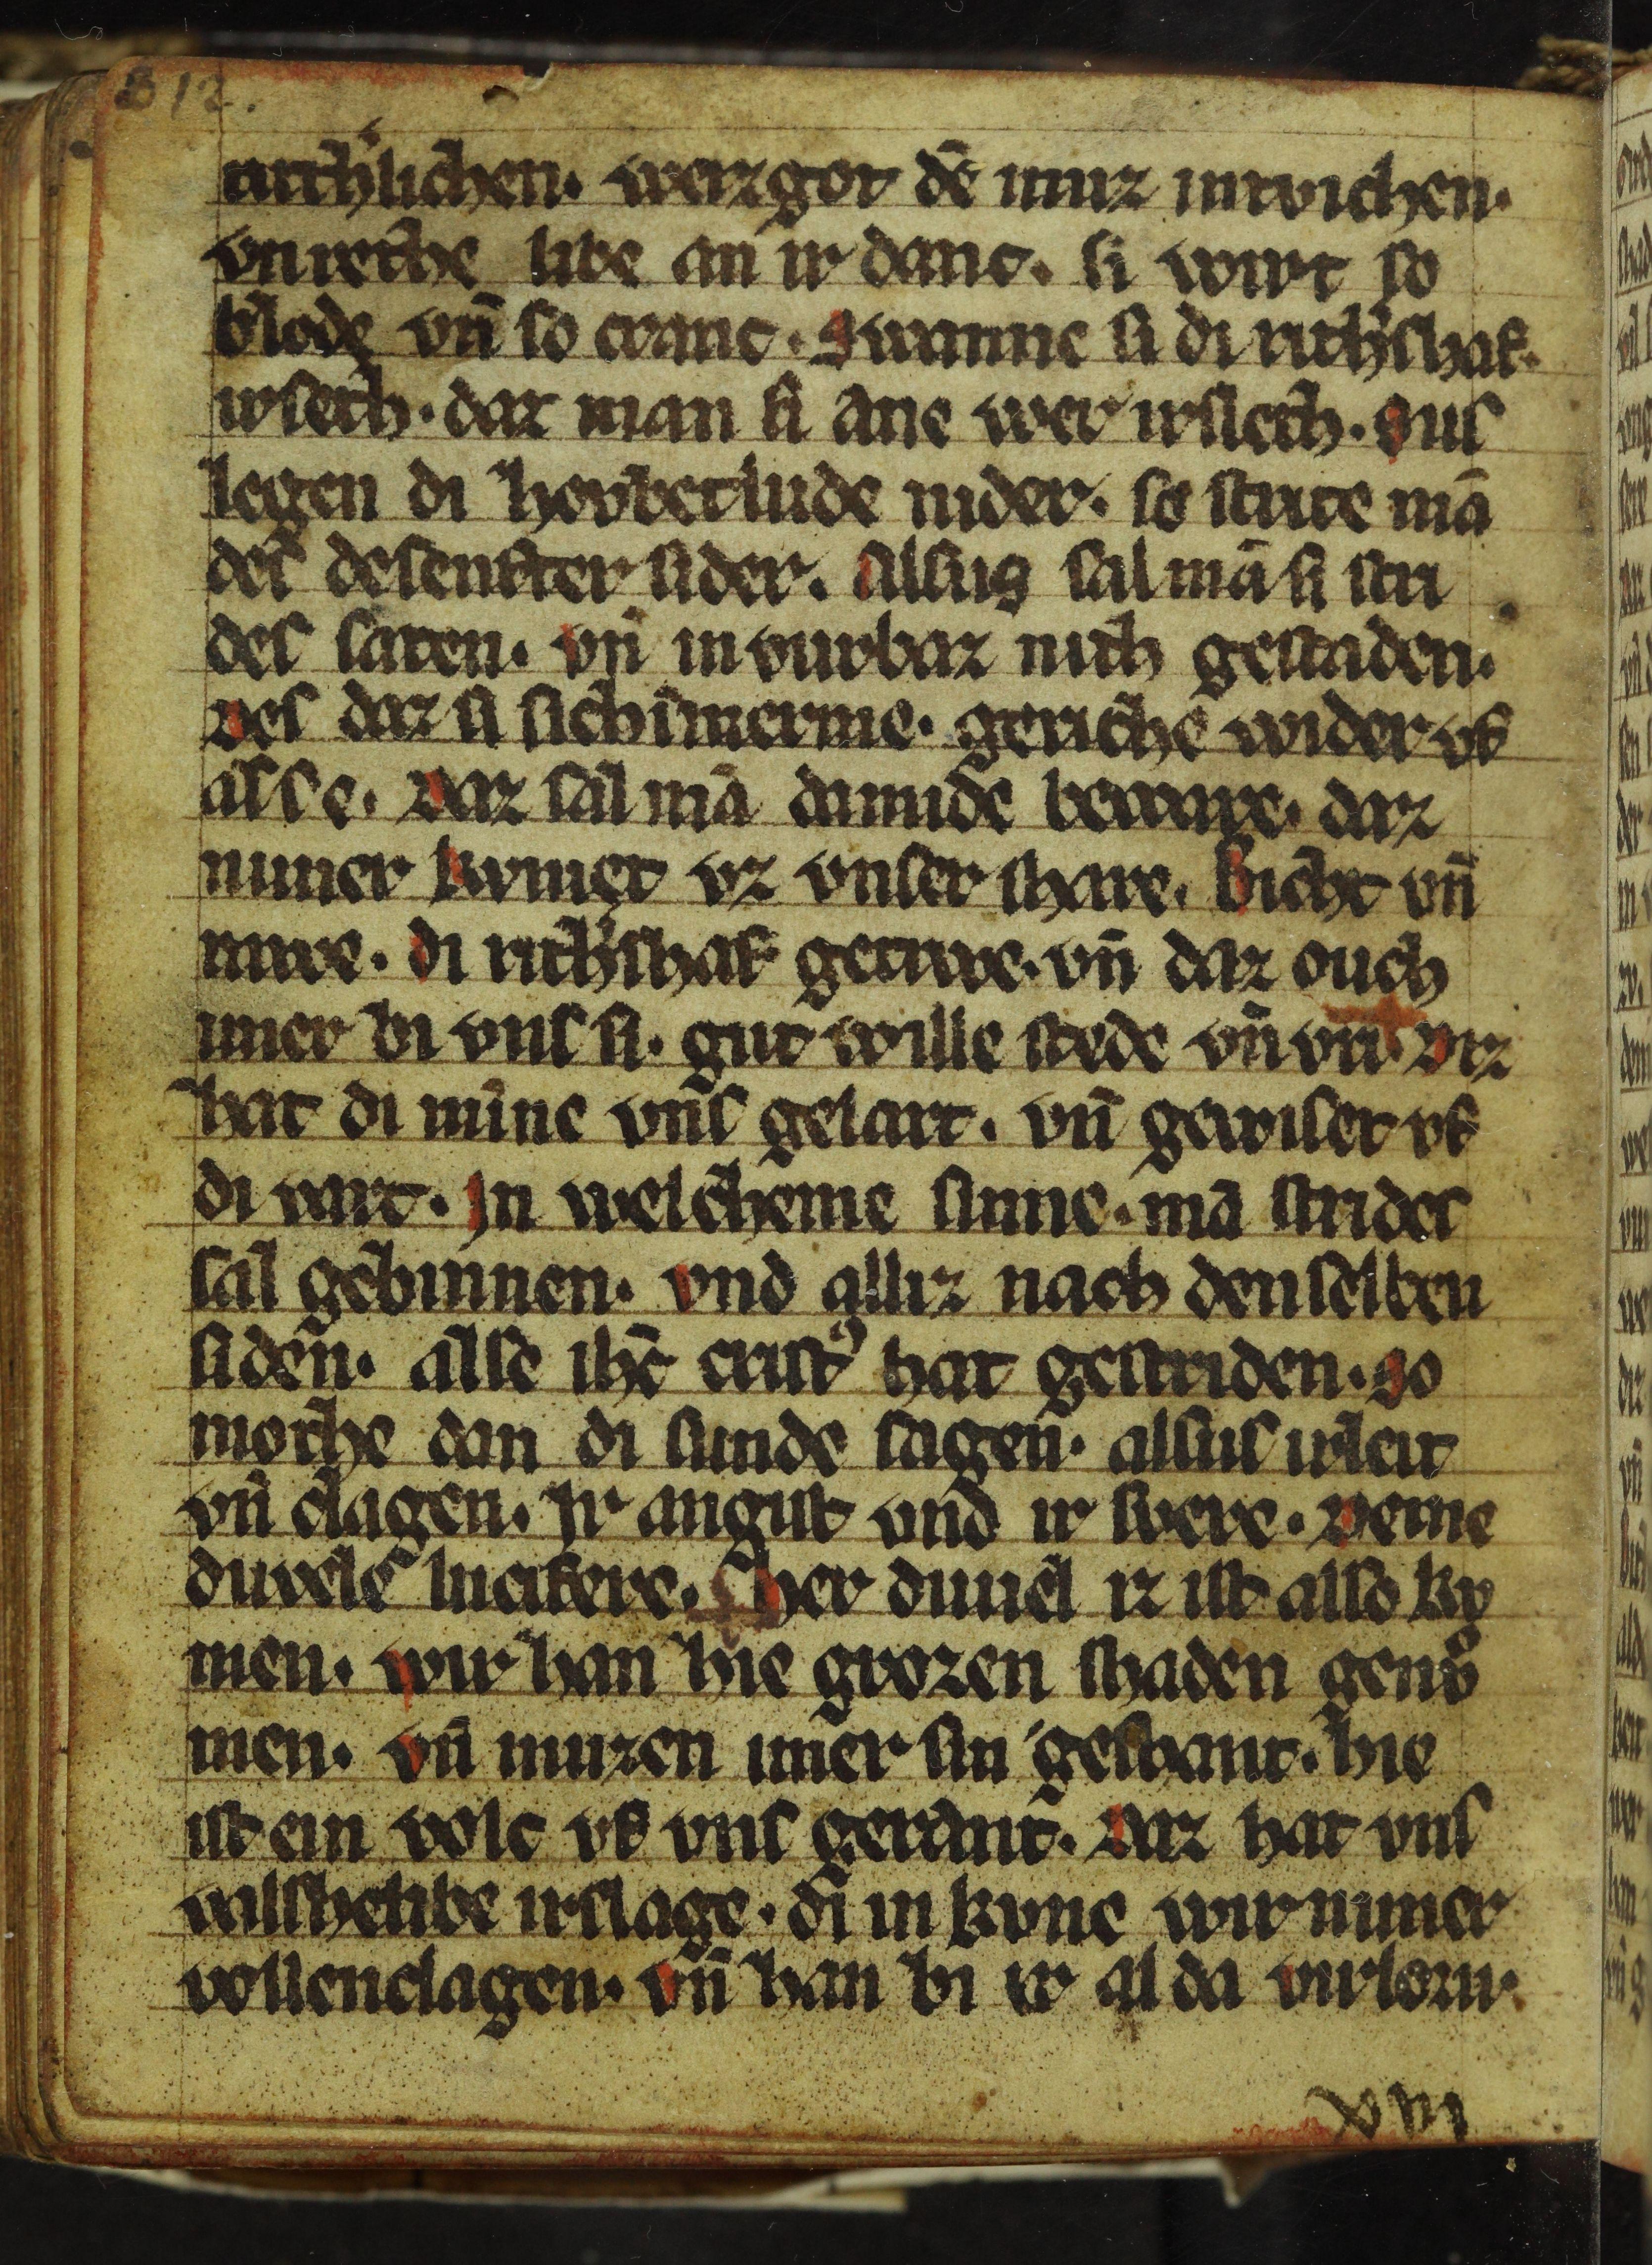 B 12.
ritth'lichen. werz got dē muz intvichen.
vnrethe libe an ir danc. si wirt so
blode vn̄ so cranc. Swanne si di rith'shaf.
irsleth. daz man si ane wer irsleth. Sus
legen di hovbetlude nider. so strite mā
des desenfter sider. Alsus sal mā si stri
des saten. vn̄ in vurbaz nith gestaden.
Des daz si sich īmerme. gerithe wider vf
alse. Daz sal mā dimude beware. daz
nimer kvmet vz vnser share. Bicht vn̄
ruwe. di rith'shaf getruwe. vn̄ daz ouch
imer bi vns si. gut wille stede vn̄ vri. Diz
hat di mīne vns gelart. vn̄ gewiset vf
di vart. In welcheme sinne. mā strides
sal gebinnen. vnd alliz nach den selben
siden. alse ihc̄ crist9 hat gestriden. So
mothe dan di sunde sagen. alsus irleit
vn̄ clagen. Ir angist vnd ir swere. Deme
duvele lucifere. Her duuel iz ist also kv
men. wir han hie grozen shaden genv̄
men. vn̄ muzen imer sin geshant. hie
ist ein volc vf vns gerant. Daz hat vns
valshe libe irslage. di in kvne wir nimer
vollenclagen. vn̄ han bi ir al da virlorn.
xviii